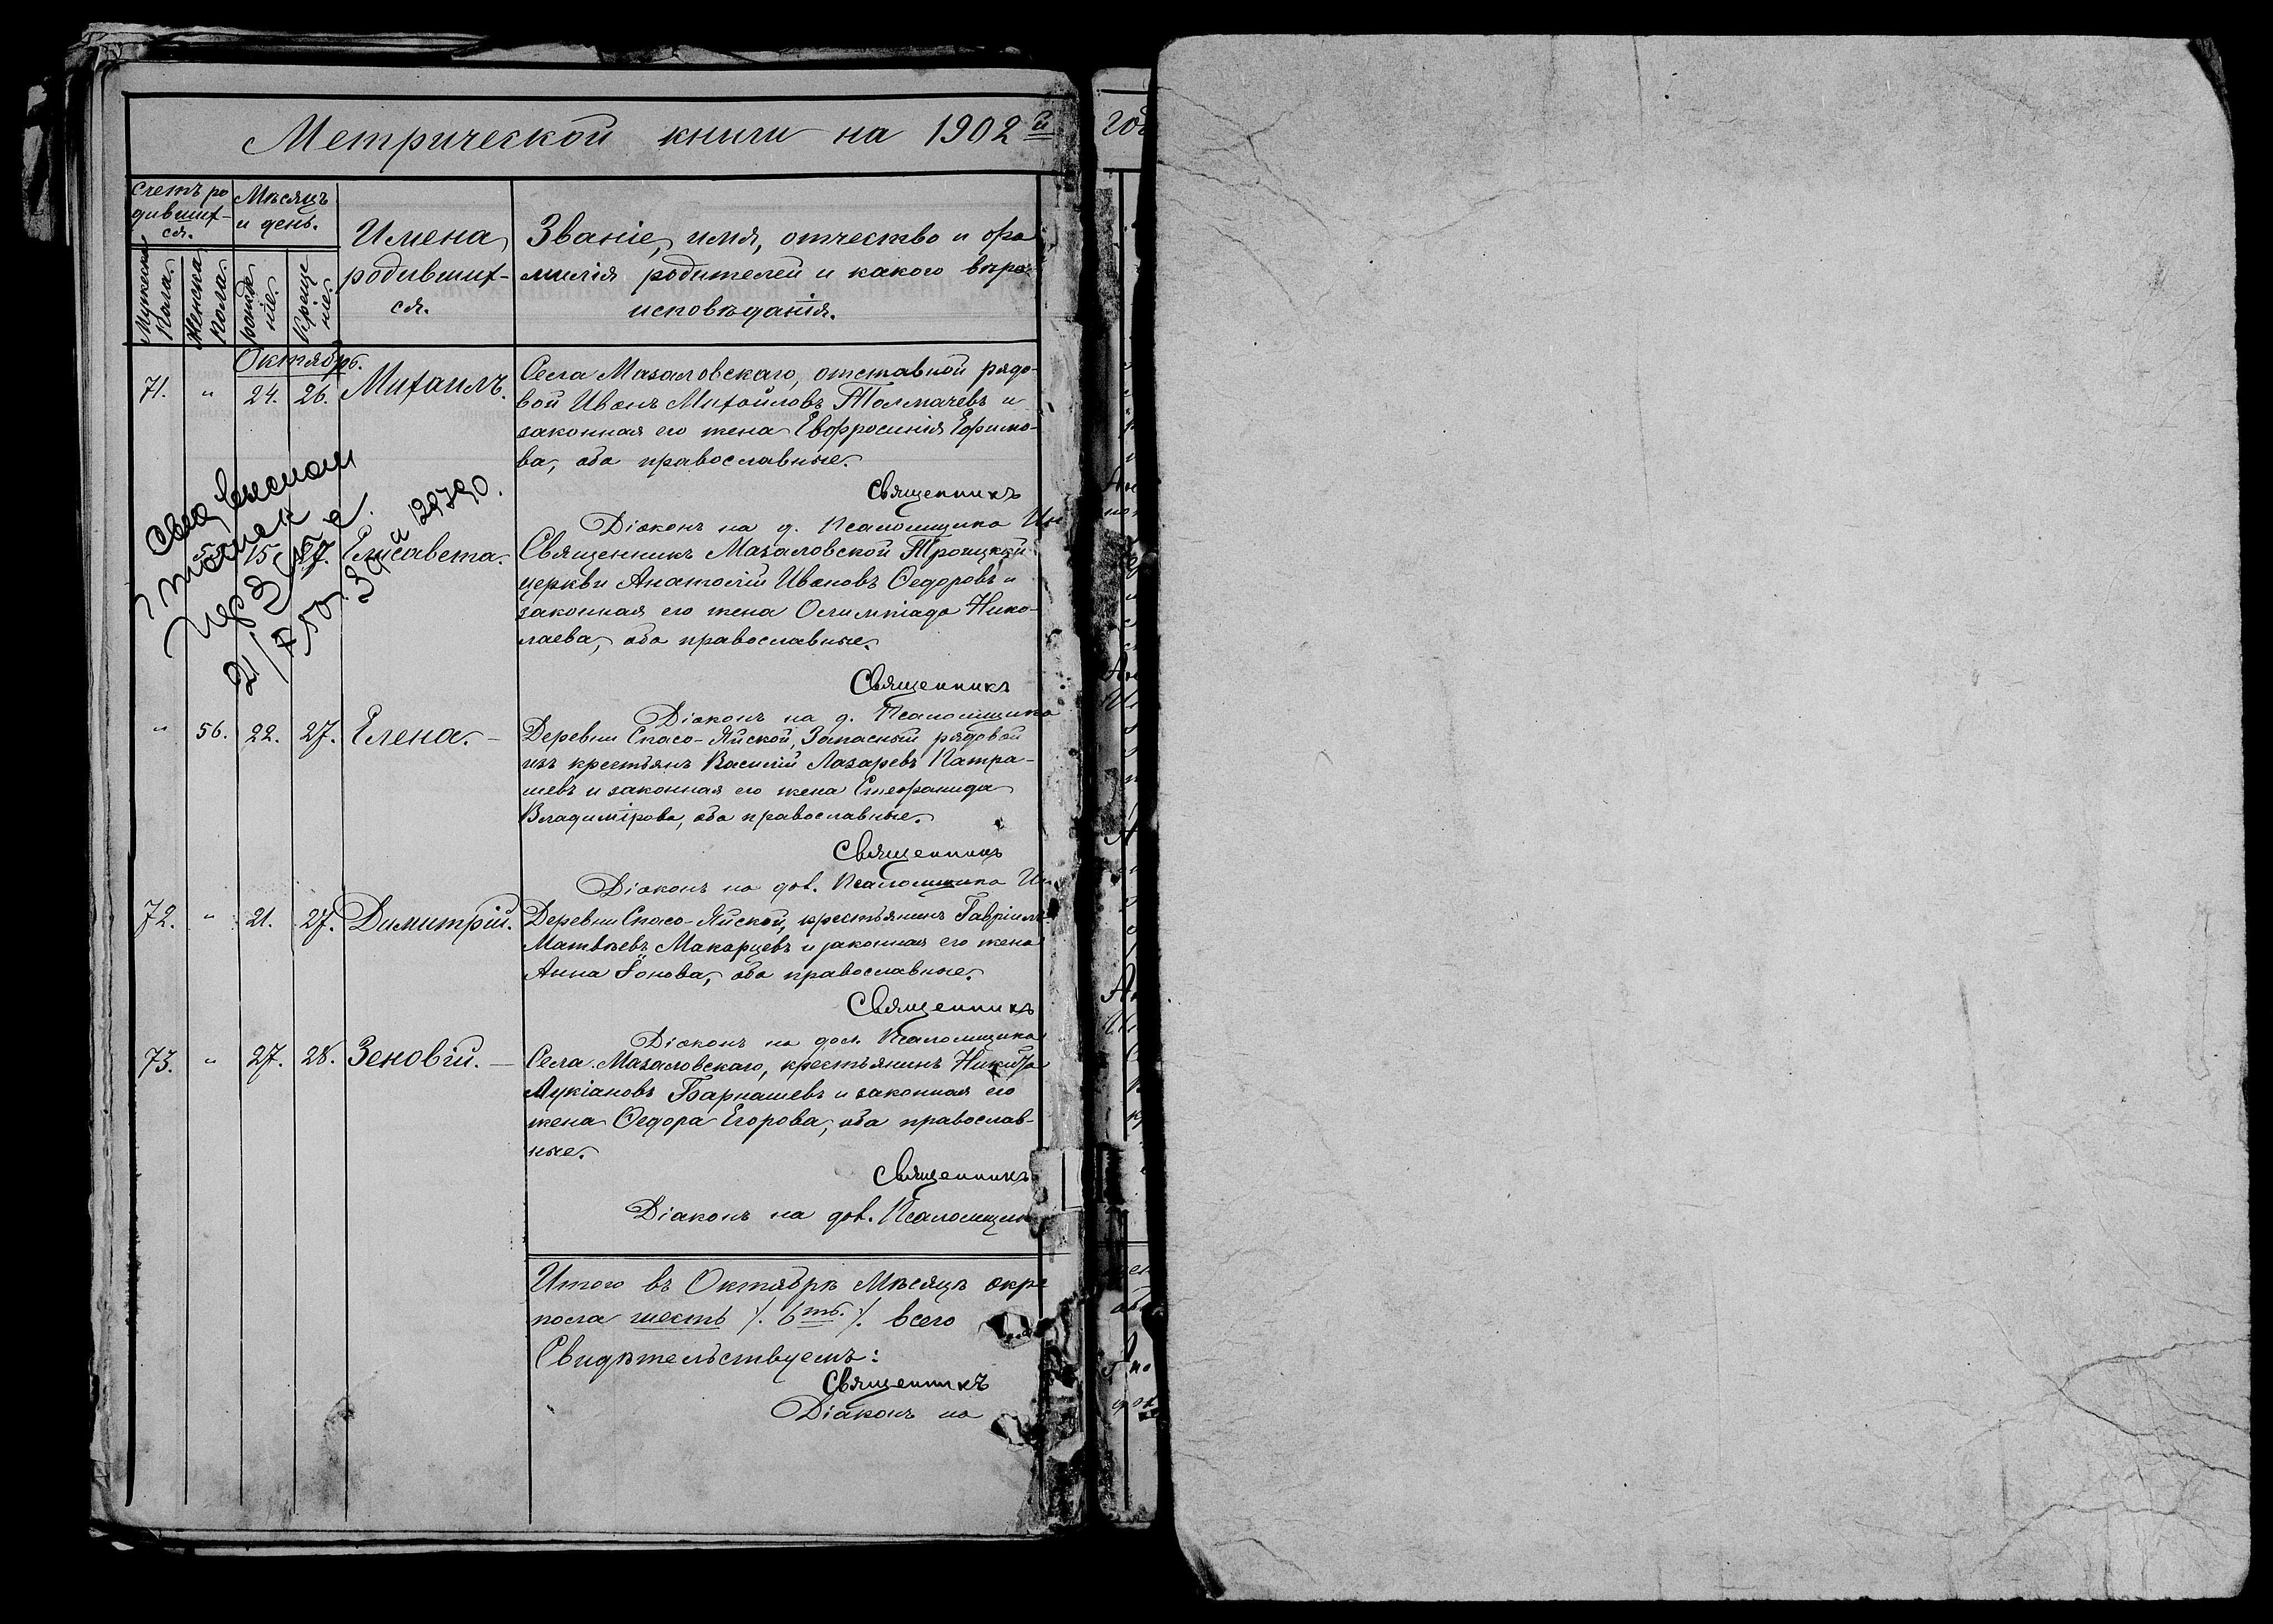 Метрической книги на 1902й
Счетъ ро
дившиг-
ся.
Мѣсяцъ
и день.
Имена
родившиг-
ся.
Званіе, имя, отчество и фа
милія родителей и какого вѣро-
исповѣданія.
Мужеска
пола.
Женска
пола.
рожде
ніе.
Креще
ніе.
Октябрь.
71. " 24. 26. Михаилъ.
Села Мазаловскаго, отставной рядо-
вой Иванъ Михайловъ Толмачевъ и
законная его жена Евфросинія Ефимо-
ва, оба православные.
Священникъ
Діаконъ на д. Псаломщика
15 27. Елисавета.
21/7 50
Священникъ Мазаловской Троицкой
церкви Анатолій Ивановъ Ѳедоровъ и
законная его жена Олимпіада Нико-
лаева, оба православные.
Священникъ
Діаконъ на д. Псаломщика
" 56. 22. 27. Елена.
Деревни Спасо-Яйской, Запасный рядовой
изъ крестьянъ Василій Лазаревъ Патра-
шевъ и законная его жена Стефанида
Владимірова, оба православные.
Священникъ
Діаконъ на дол. Псаломщика
72. " 21. 27. Димитрій.
Деревни Спасо-Яйской, крестьянинъ Гавріилъ
Матвѣевъ Макарцевъ и законная его жена
Анна Іонова, оба православные.
Священникъ
Діаконъ на дол. Псаломщика
73. " 27. 28. Зеновій.
Села Мазаловскаго, крестьянинъ Никита
Лукіановъ Барнашевъ и законная его
жена Ѳедора Егорова, оба православ-
ные.
Священникъ
Діаконъ на дол. Псаломщик
Итого въ Октябрѣ Мѣсяцѣ
пола шесть /. 6ть. /. всего
Свидѣтельствуемъ:
Священникъ
Діаконъ на